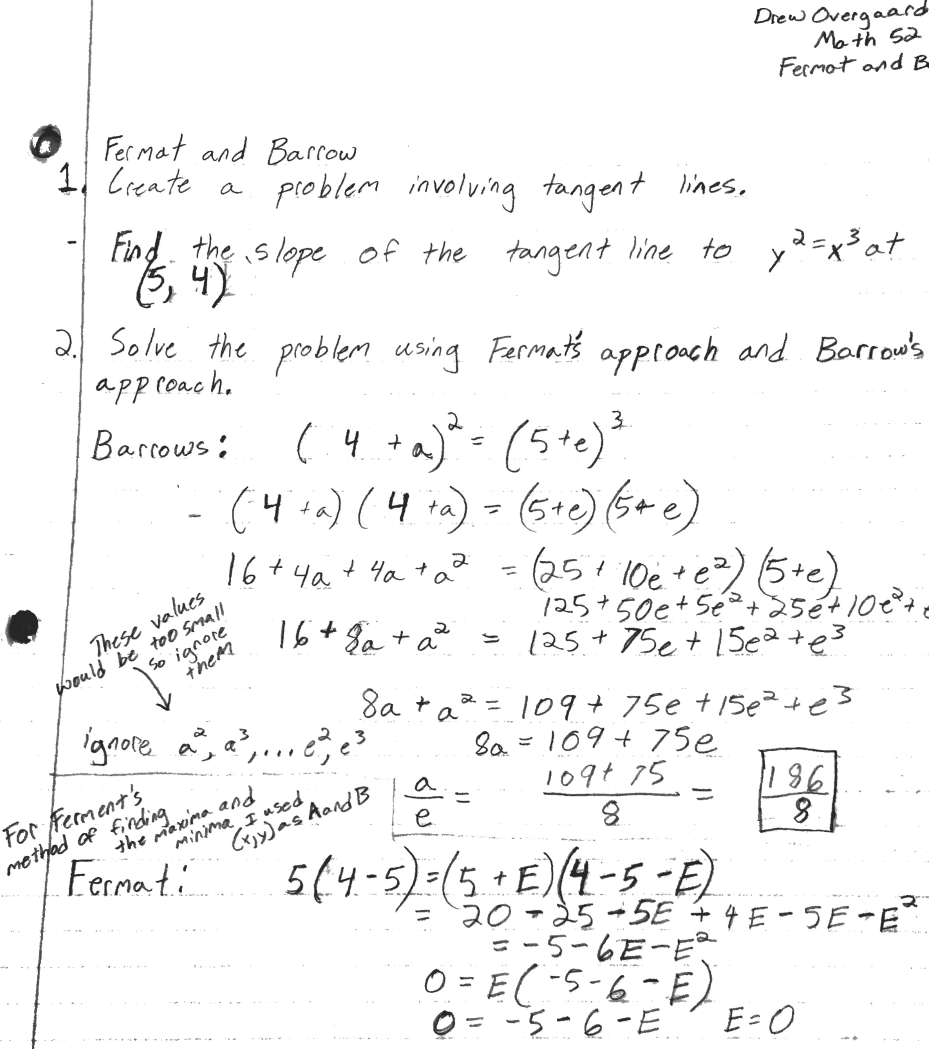 Drew Overgaard
Math 52
Fermat and B
Fermat and Barrow
1. Create a problem involving tangent lines.
- Find the slope of the tangent line to y²=x³ at
(5, 4)
2. Solve the problem using Fermat's approach and Barrow's
approach.
Barrows: (4 + a)² = (5+e)³
- (4 +a)(4 +a) = (5+e)(5+e)
16 + 4a + 4a + a² = (25 + 10e + e²)(5+e)
125 + 50e + 5e² + 25e + 10e² +
16 + 8a + a² = 125 + 75e + 15e² + e³
These values
would be too small
so ignore
them
8a + a² = 109 + 75e + 15e² + e³
ignore a², a³, ... e², e³
8a = 109 + 75e
a/e = (109+ 75)/8 = 186/8
For Ferment's
method of finding
the maxima and
minima I used
(x,y) as A and B
Fermat: 5(4-5) = (5 + E)(4-5-E)
= 20 - 25 - 5E + 4E - 5E - E²
= -5 - 6E - E²
0 = E(-5 - 6 - E)
0 = -5 - 6 - E E=0